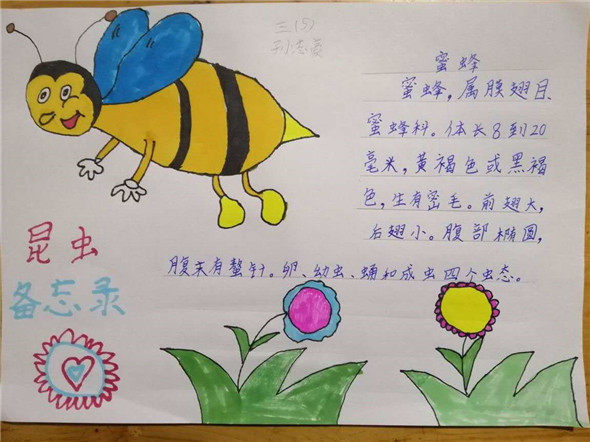 三(5)
蜜蜂
蜜蜂,属膜翅目
蜜蜂科。体长8到20
毫米,黄褐色或黑褐
色,生有密毛。前翅大,
后翅小。腹部椭圆,
腹末有螫针。卵、幼虫、蛹和成虫四个虫态。
昆虫
备忘录